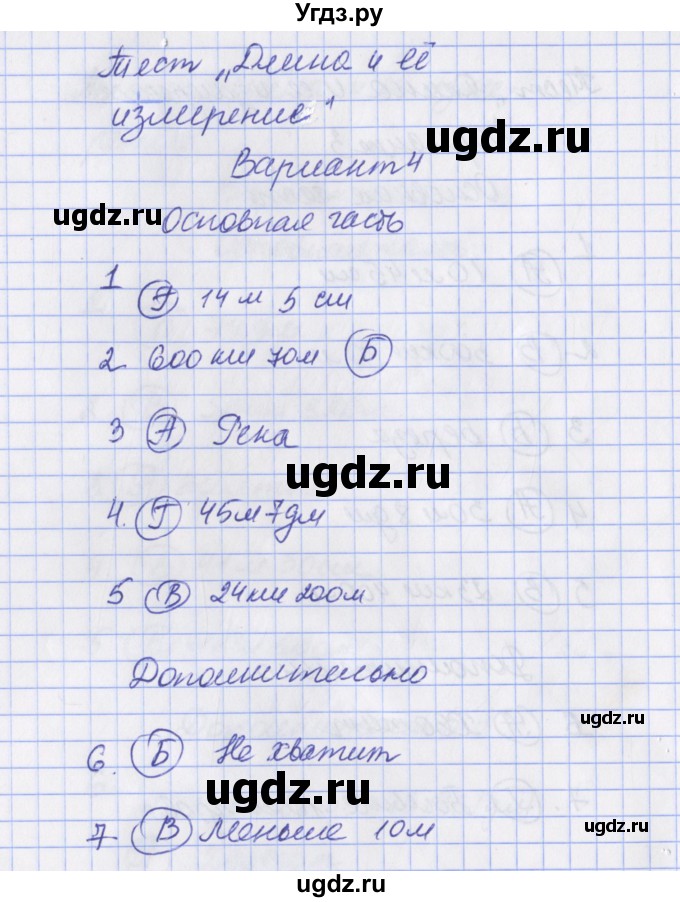 Угдз.ру
Тест „Длина и её
измерение"
ugdz.ru
Вариант 4
ugdz.ru
Основная часть
1 Г 14 м 5 см
2. 600 км 70м Б
3 А Гена
ugdz.ru
4. Г 45м 7дм
5 В 24км 200м
Дополнительно
ugdz.ru
6. Б Не хватит
ugdz.ru
7. В Меньше 10м
ugdz.ru
ugdz.ru